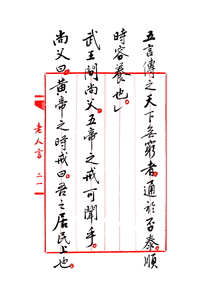 五言傳之天下無窮者通於否泰順
時容養也」
武王問尚父五帝之戒可聞乎
尚父曰黃帝之時戒曰吾之居民上也
老人言 二一